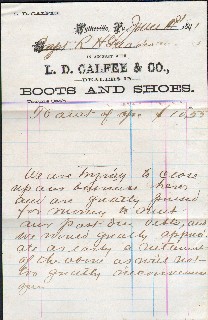 L. D. CALFEE
Pulaski, Va., June 10th 1891
Capt. R. H.
IN ACCOUNT WITH
L. D. CALFEE & CO.,
DEALERS IN
BOOTS AND SHOES.
To amt of a/c $10.55
We are trying to close
up our business here,
and are greatly pressed
for money to meet
our past due debts, and
we would greatly appre
ciate as early a settlement
of the above as will not
too greatly inconvenience
you.